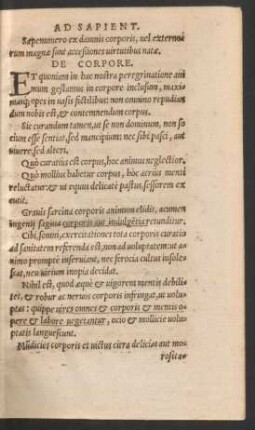 AD SAPIENT.
Sæpenumero ex damnis corporis, uel externorum
rum magnæ sunt accessiones uirtutibus natæ.
DE CORPORE.
ET quoniam in hac nostra peregrinatione ani
mum gestamus in corpore inclusum, maxi
masq; opes in uasis fictilibus: non omnino repudian
dum nobis est, & contemnendum corpus.
Sic curandum tamen, ut se non dominum, non so
cium esse sentiat, sed mancipium: nec sibi pasci, aut
uiuere, sed alteri.
Quò curatius est corpus, hoc animus neglectior.
Quò mollius habetur corpus, hoc acrius menti
reluctatur: & ut equus delicatè pastus, sessorem ex
cutit.
Grauis sarcina corporis animum elidit, acumen
ingenij sagina corporis aut indulgẽtia retunditur.
Cibi, somni, exercitationes tota corporis curatio
ad sanitatem referenda est, non ad uoluptatem: ut a
nimo promptè inseruiant, nec ferocia cultus insoles
cat, neu uirium inopia decidat.
Nihil est, quod æquè & uigorem mentis debili
tet, & robur ac neruos corporis infringat, ut uolu
ptas: quippe uires omnes & corporis & mentis o
pere & labore uegetantur, ocio & mollicie uolu
ptatis languescunt.
Mũdicies corporis et uictus citra delicias aut mo
rosita=